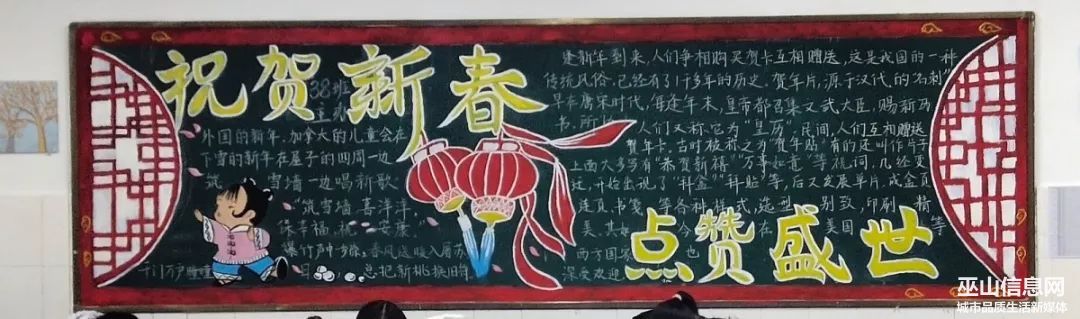 祝贺新春
38班
主办
外国的新年，加拿大的儿童会在
下雪的新年在屋子的四周一边
筑 雪墙一边唱新歌
"筑雪墙 喜洋洋，
保幸福，祝 安康
爆竹声中一岁除，春风送暖入屠苏
千门万户曈曈日 总把新桃换旧符
逢新年到来，人们争相购买贺卡互相赠送，这是我国的一种
传统风俗，已经有了1千多年的历史。贺年片，源于汉代的"名刺"
早在唐宋时代，每逢年末，皇帝都召集文武大臣，赐新历
书，所以 人们又称它为"皇历"，民间，人们互相赠送
贺年卡，古时被称之为"贺年贴"有的还叫作片子
上面大多写有"恭贺新禧""万事如意"等祝词，几经变
迁，开始出现了"科金""科贴"等，后又发展单片，成金页
连页、书笺、等各种样式，造型 别致，印刷 精
美，其 今 在 美国 等
西方国家 也
深受欢迎
点赞盛世
巫山信息网
城市品质生活新媒体